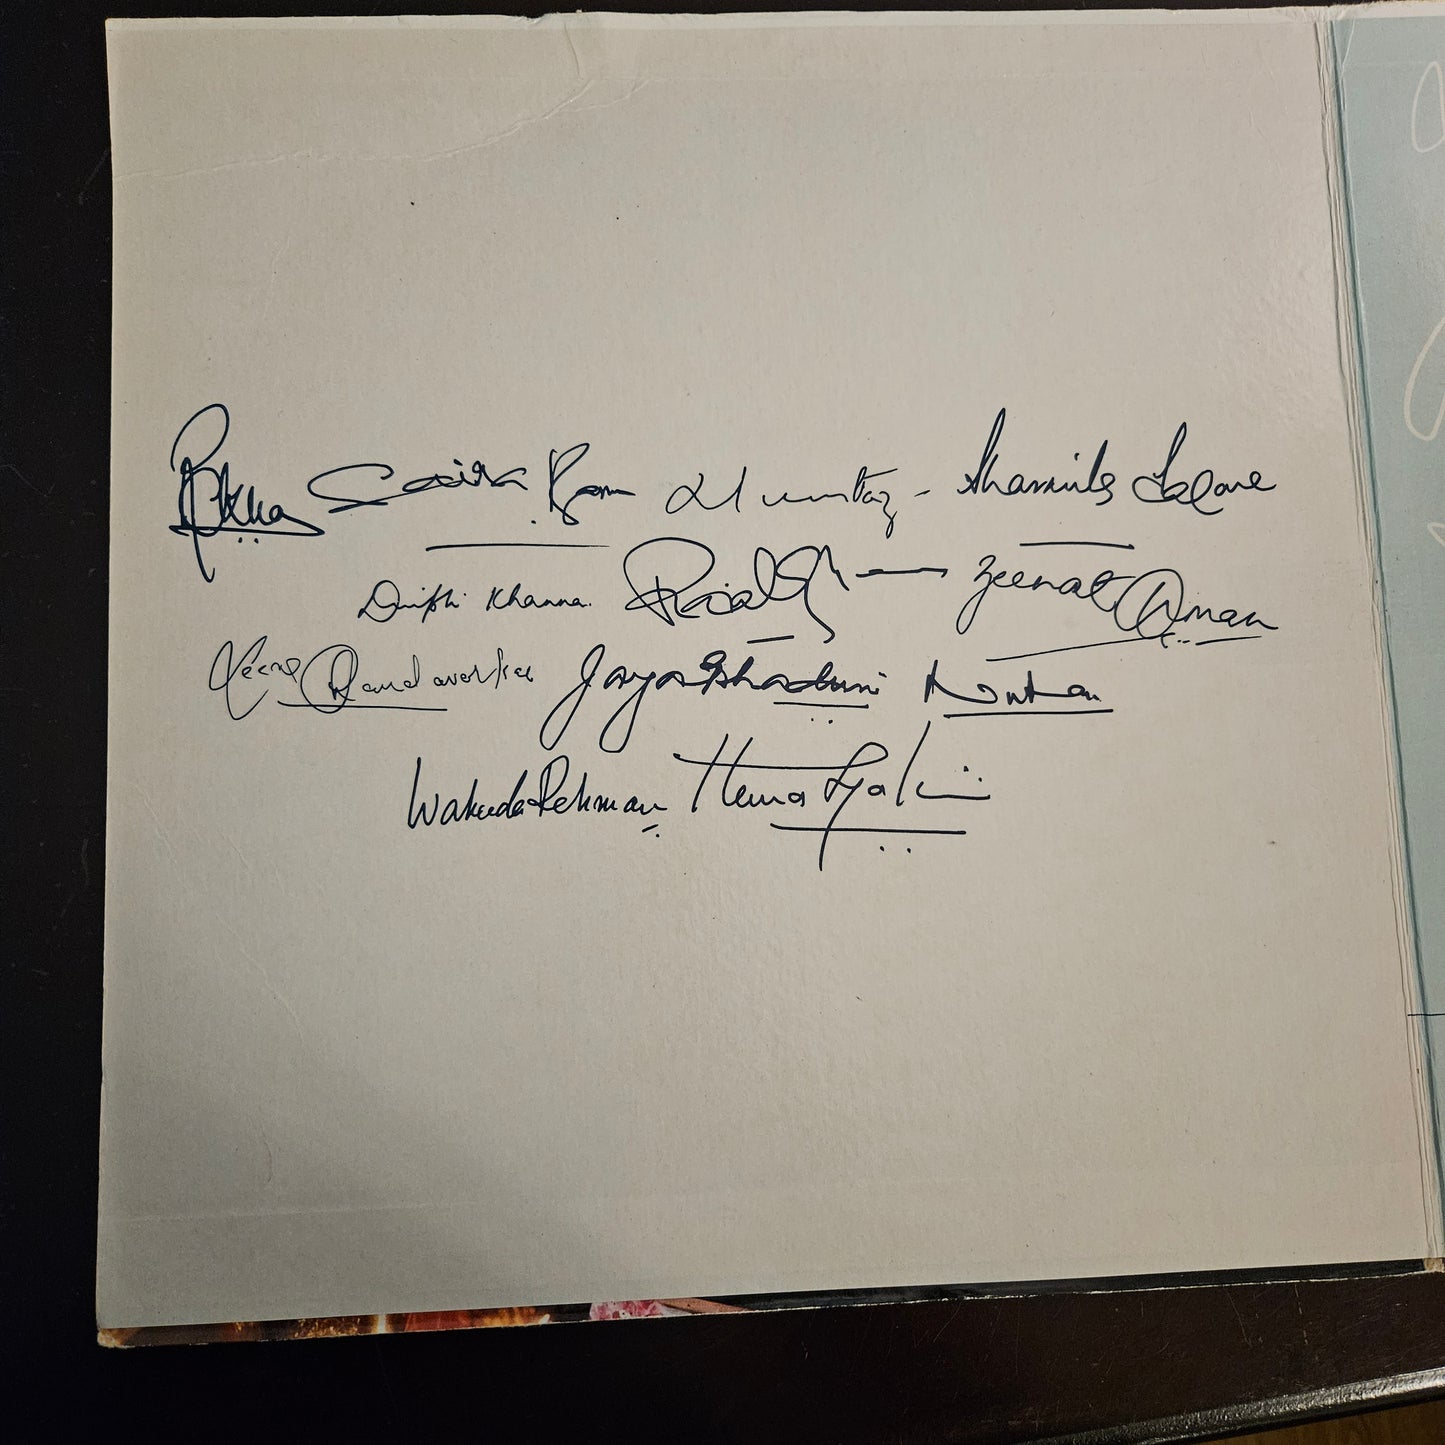 Rekha Saira Banu Mumtaz - Sharmila Tagore
Khanna. Zeenat Aman
Leena Chandavarkar Jaya Bhaduri Nutan
Waheeda Rehman Hema Malini